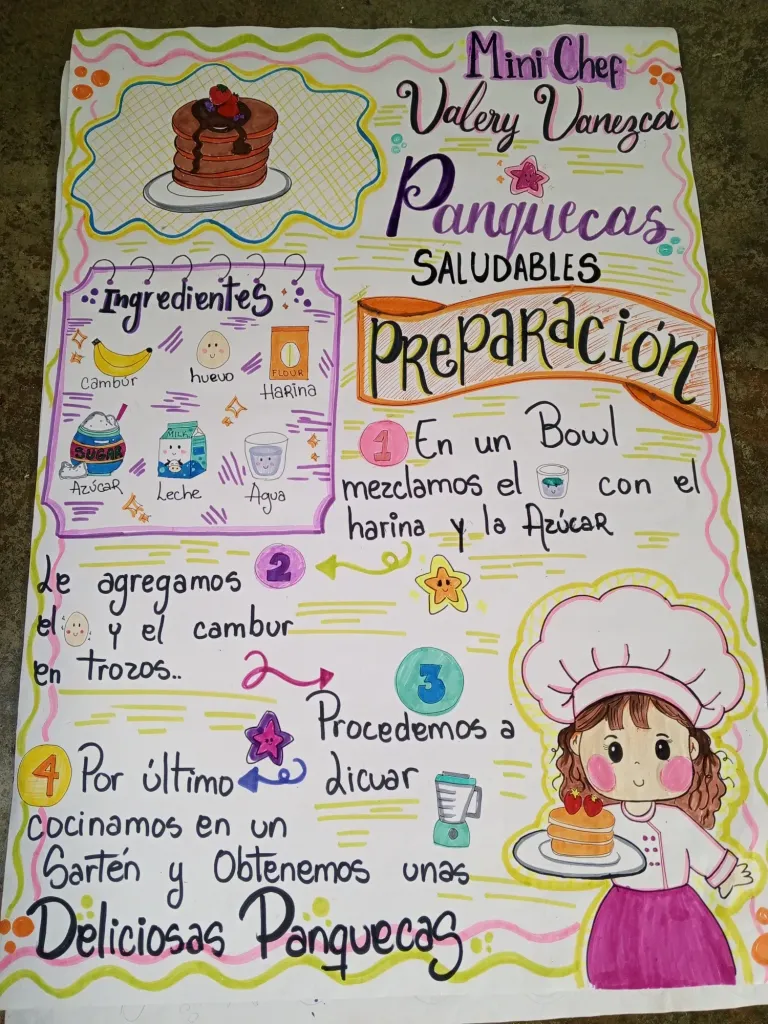 Mini Chef
Valery Vanezca
Panquecas
SALUDABLES
Ingredientes
Cambur
huevo
FLOUR
Harina
SUGAR
Azúcar
MILK
Leche
Agua
PREPARACIÓN
1 En un Bowl
mezclamos el con el
harina y la Azúcar
2
Le agregamos
el y el cambur
en trozos..
3
Procedemos a
licuar
4 Por último
cocinamos en un
Sartén y Obtenemos unas
Deliciosas Panquecas